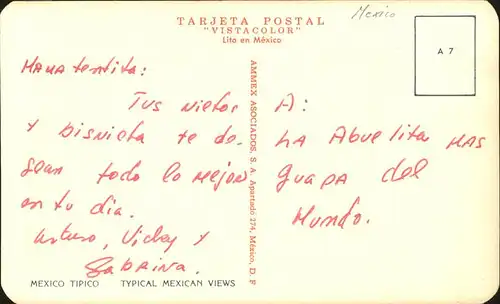 TARJETA POSTAL
"VISTACOLOR"
Lito en México
Mexico
A 7
Tus nietos
y bisnieta te de-
sean todo lo mejor
en tu dia.
Arturo, Vicky y
Sabrina.
AMMEX ASOCIADOS, S. A. Apartado 274, México, D. F
A:
LA Abuelita MAS
guapa del
Mundo.
MEXICO TIPICO TYPICAL MEXICAN VIEWS